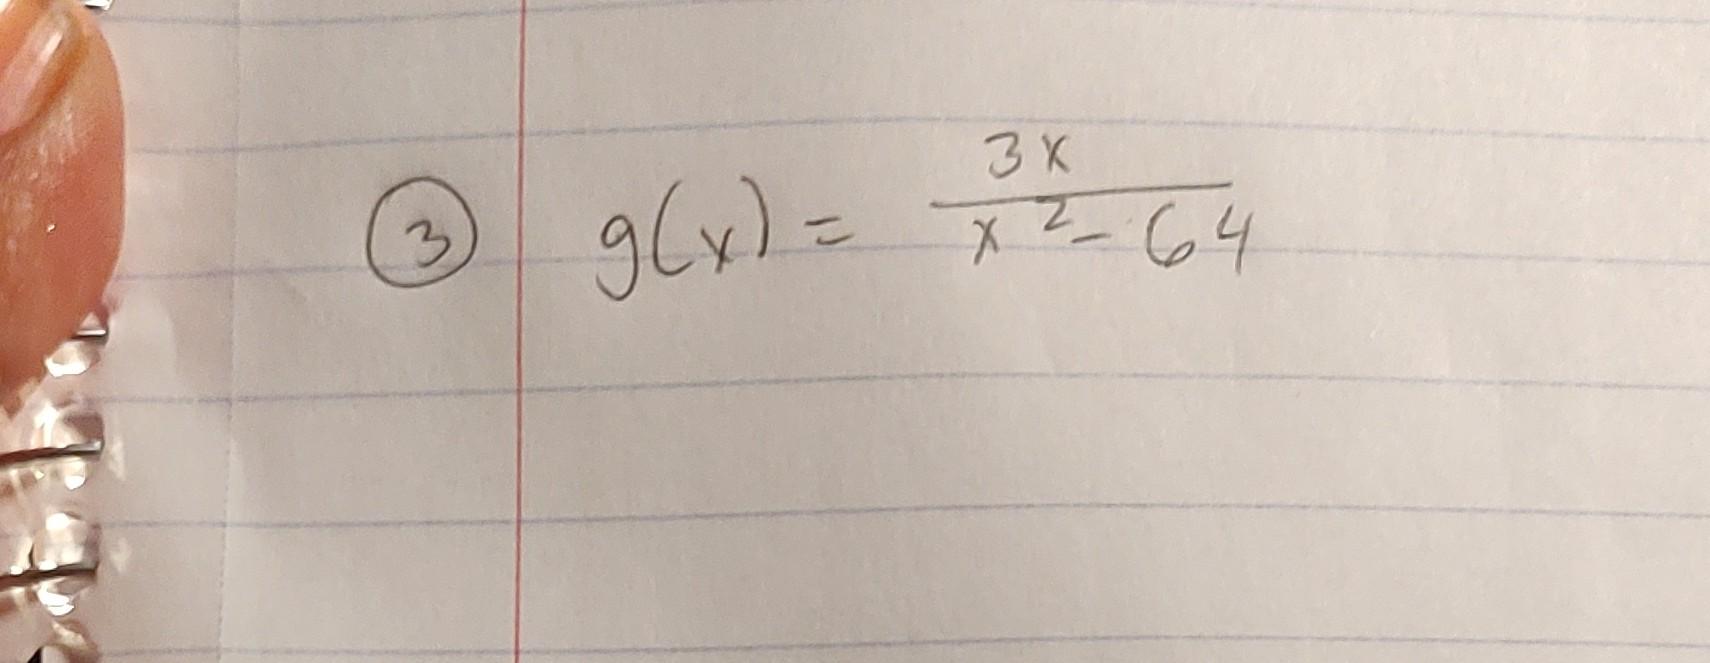 ③ g(x) = 3x / x² - 64